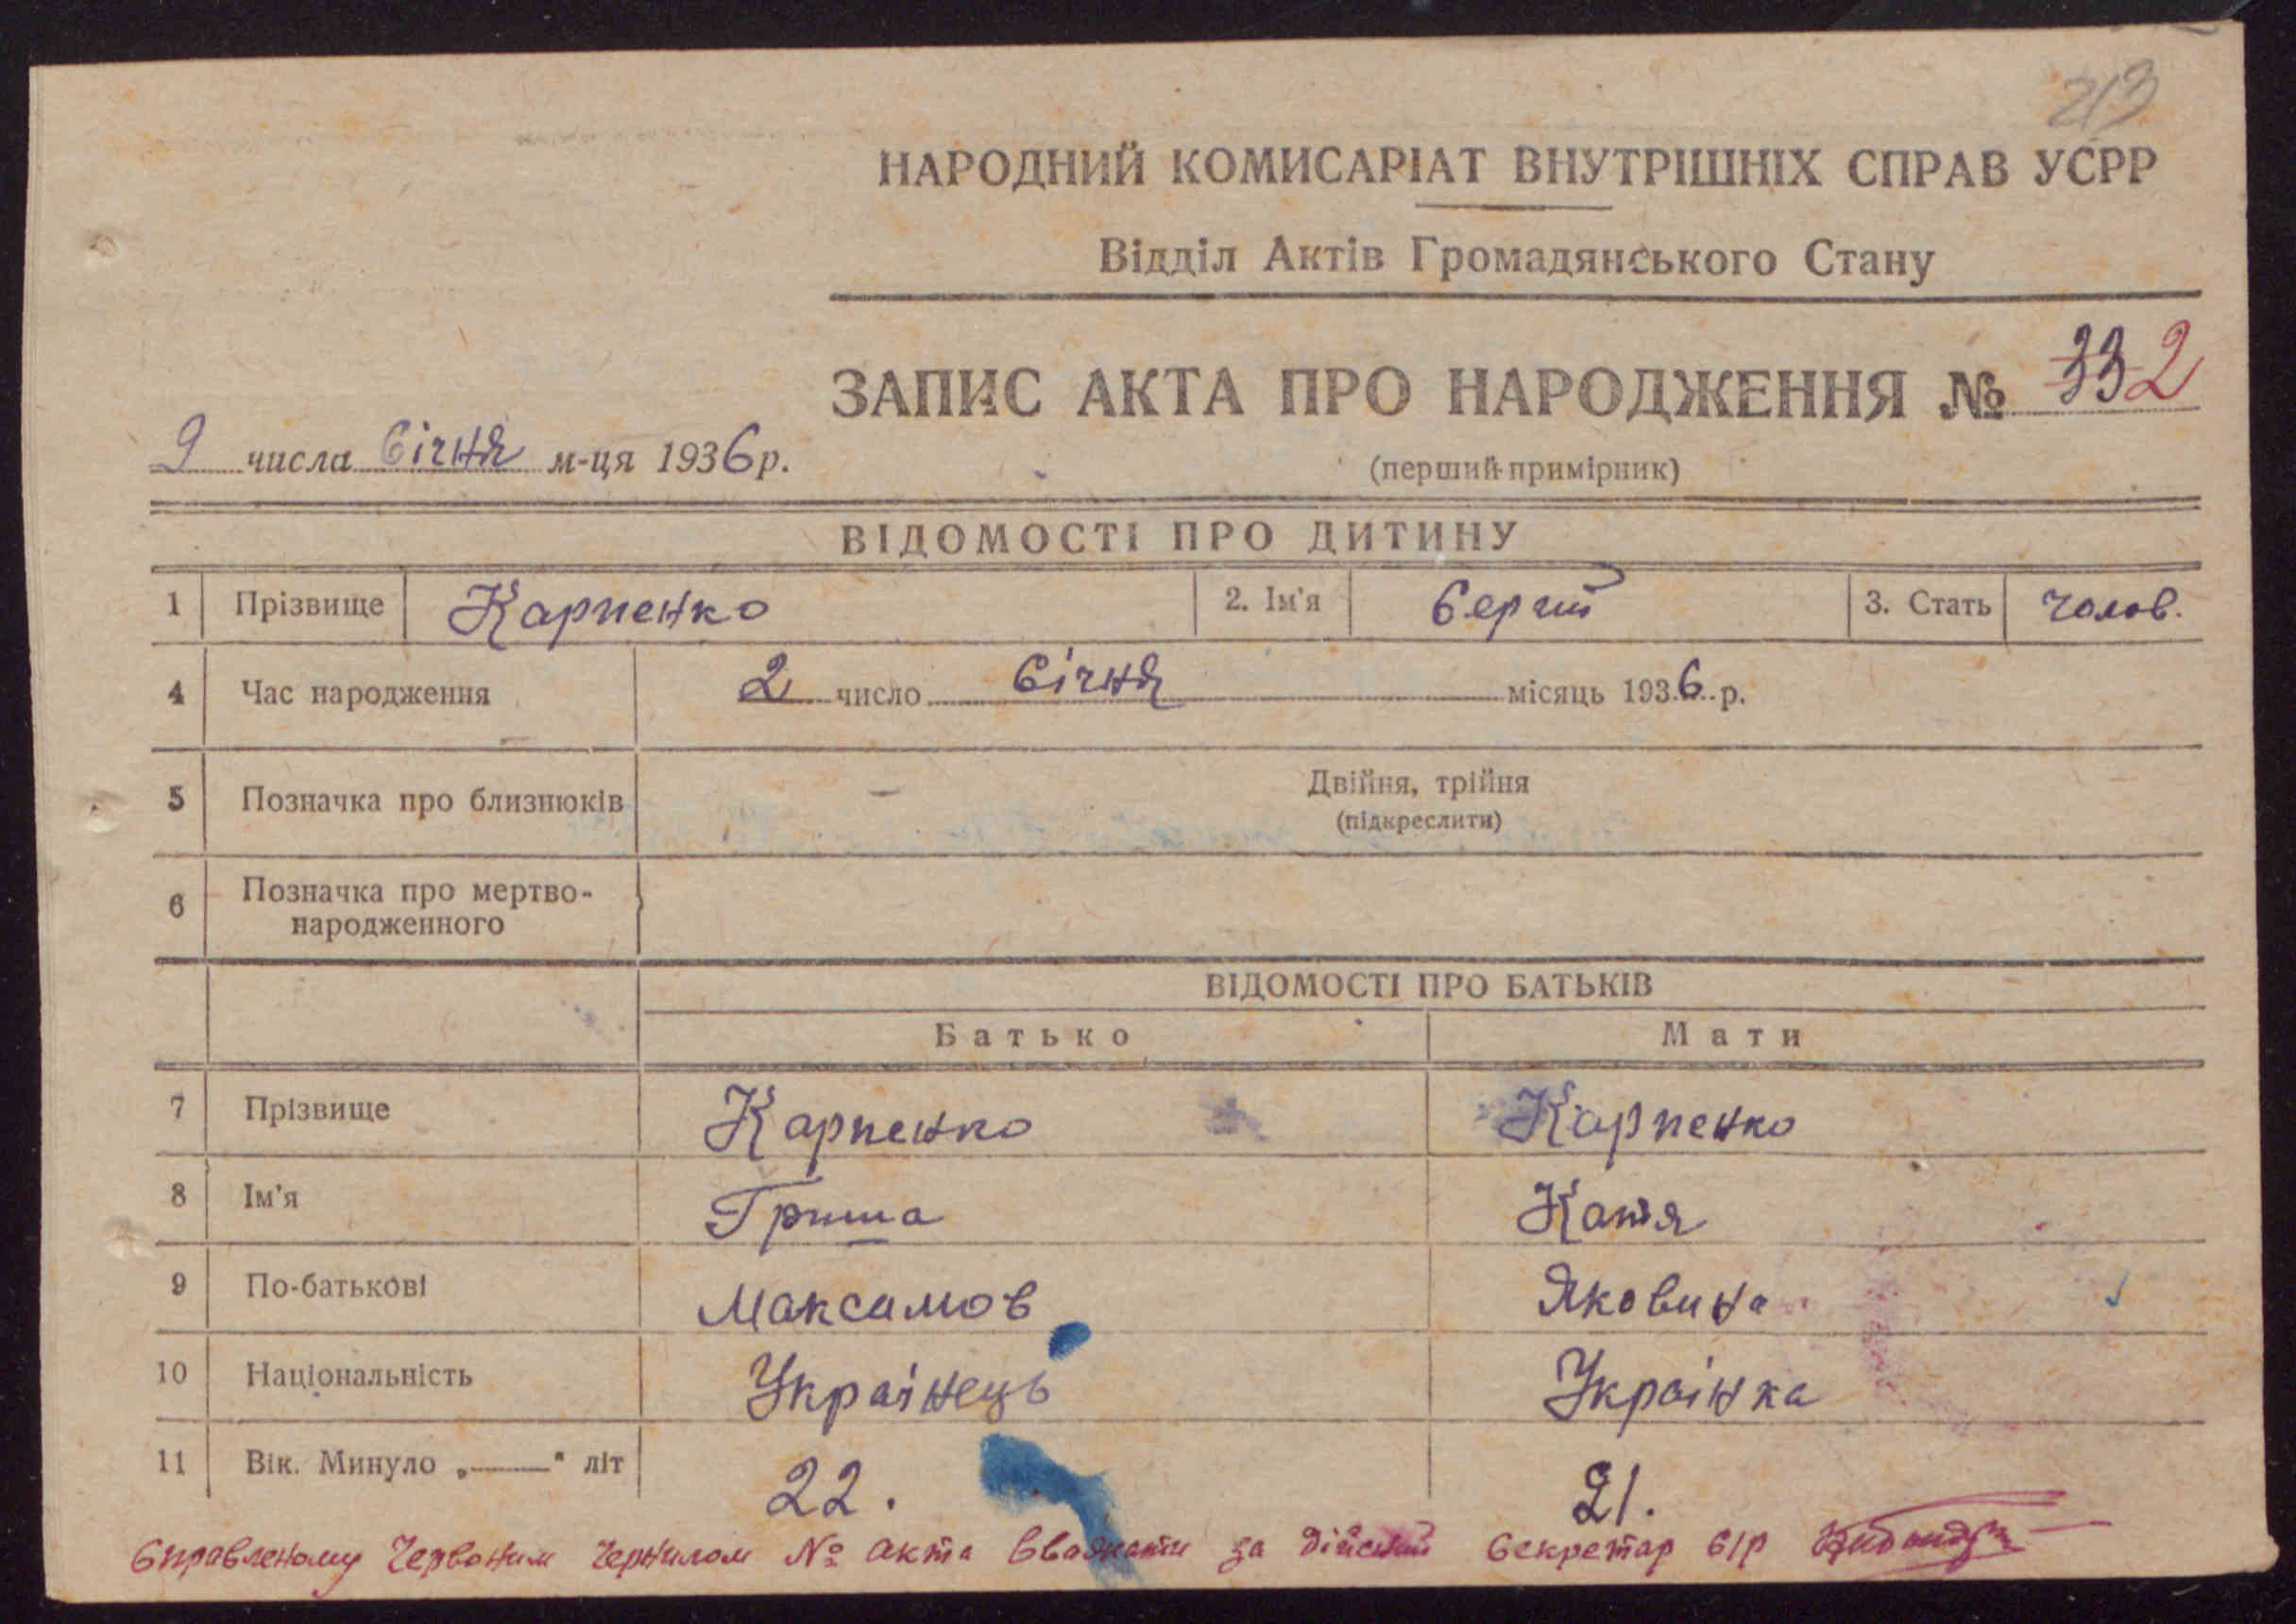 213
НАРОДНИЙ КОМИСАРІАТ ВНУТРІШНІХ СПРАВ УСРР
Відділ Актів Громадянського Стану
ЗАПИС АКТА ПРО НАРОДЖЕННЯ №
9 числа Січня м-ця 1936 р.
(перший примірник)
ВІДОМОСТІ ПРО ДИТИНУ
1 Прізвище Карпенко 2. Ім'я Сергій 3. Стать Чолов.
4 Час народження 2 число Січня місяць 1936 р.
5 Позначка про близнюків Двійня, трійня
(підкреслити)
6 Позначка про мертво-
народженного
ВІДОМОСТІ ПРО БАТЬКІВ
Батько Мати
7 Прізвище Карпенко Карпенко
8 Ім'я Гриша Катя
9 По-батькові Максимов Яковина
10 Національність Українець Українка
11 Вік. Минуло „——“ літ 22. 21.
Справленому Червоним Чернилом № акта Вважати за дійсний Секретар С/р